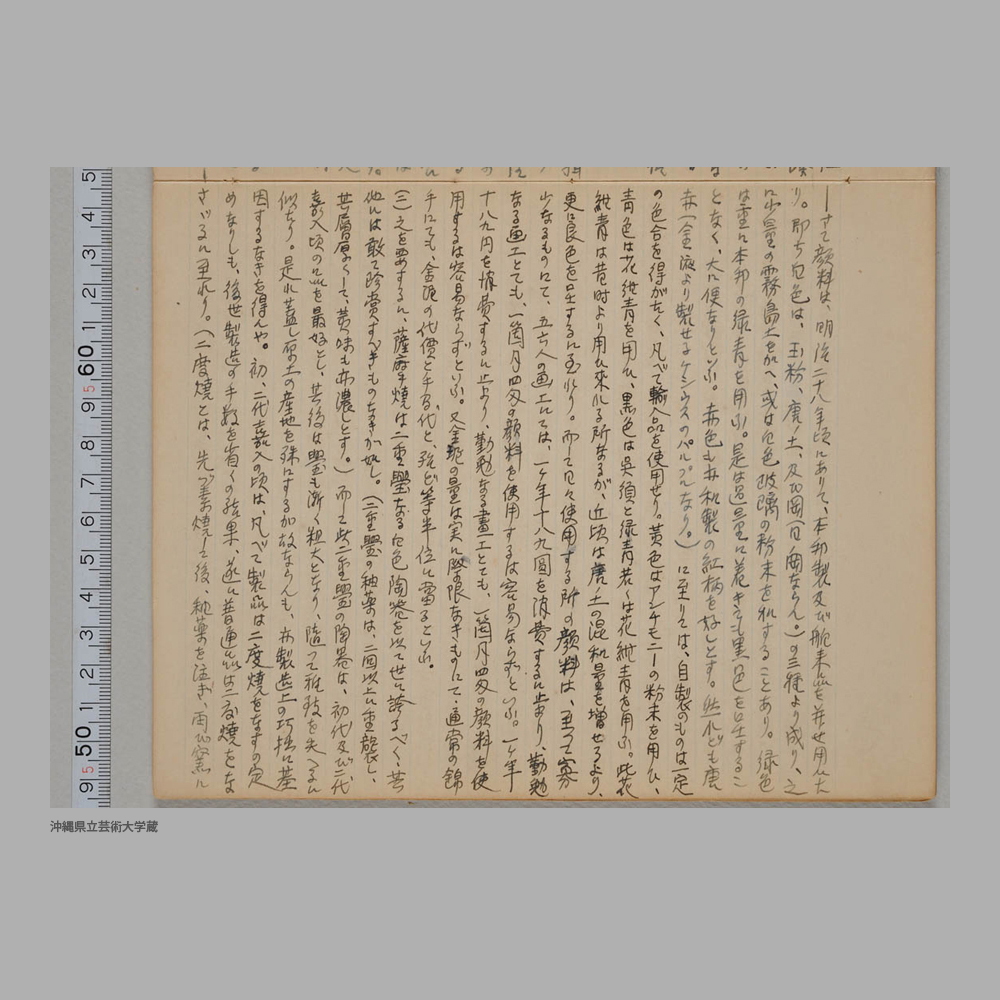 一さて顔料は、明治二十八年頃にありて、本邦製及び舶来品を并せ用ゐた
り。即ち白色は、玉粉、唐ノ土、及び岡(日ノ岡ならん。)の三種より成り、之
に少量の霧島土を加へ、或は白色玻璃の粉末を和することあり。緑色
は重に本邦の緑青を用ふ。是は過量に着きても黒色を呈するこ
となく、大に便なりといふ。赤色も亦和製の紅柄を好しとす。然れども唐
赤(金液より製せるケシウスのパルプルなり。)に至りては、自製のものは一定
の色合を得がたく、凡べて輸入品を使用せり。黄色はアンチモニーの粉末を用ひ、
青色は花紺青を用ひ、黒色は呉須と緑青若くは花紺青を用ふ。此花
紺青は昔時より用ひ来れる所なるが、近頃は唐ノ土の混和量を増せるより、
更に良色を呈するに至れり。而して日々使用する所の顔料は、至って寡
少なるものにて、五六人の画工にては、一ヶ年十八九圓を消費するに止まり、勤勉
なる画工とても、一箇月四匁の顔料を使用するは容易ならずといふ。一ヶ年
十八九円を消費するに止より、勤勉なる畫工とても、一箇月四匁の顔料を使
用するは容易ならずといふ。又金泥の量は実に際限なきものにて、通常の錦
手にても、金泥の代價と手間代と、殆ど等半位に當るといふ。
(三)之を要するに、薩摩焼は二重罌なる白色陶器を以て世に誇るべく、其
他には敢て珍賞すべきものなきが如し。(二重罌の釉薬は、二回以上に重襲し、
其層厚くして、黄味も亦濃しとす。)而して此二重罌の陶器は、初代及び二代
嘉入頃の品を最好とし、其後は罌も漸く粗大となり、随って雅致を失へるに
似たり。是れ蓋し原土の産地を殊にするが故ならんも、亦製造上の巧拙に基
因するなきを得んや。初、二代嘉入の頃は、凡べて製品は二度焼をなすの定
めなりしも、後世製造の手数を省くの結果、遂に普通品は二度焼をな
さゞるに至れり。(二度焼とは、先づ素焼して後、釉薬を注ぎ、再び窯に
9
5
50
1
2
3
4
5
6
7
8
9
5
60
1
2
3
4
5
沖縄県立芸術大学蔵